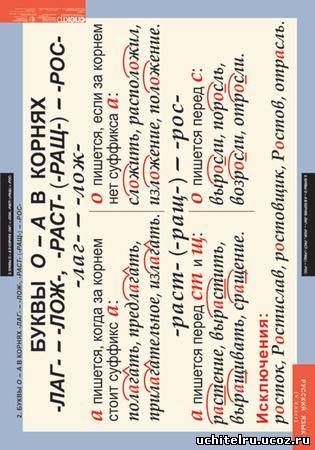 2. БУКВЫ О – А В КОРНЯХ -ЛАГ- – -ЛОЖ-, -РАСТ- (-РАЩ-) – -РОС-
БУКВЫ О – А В КОРНЯХ
-ЛАГ- – -ЛОЖ-, -РАСТ- (-РАЩ-) – -РОС-
-лаг- – -лож-
а пишется, когда за корнем
стоит суффикс а:
полагать, предлагать,
прилагательное, излагать.
о пишется, если за корнем
нет суффикса а:
сложить, расположил,
изложение, положение.
-раст- (-ращ-) – -рос-
а пишется перед ст и щ:
растение, вырастить,
выращивать, сращение.
о пишется перед с:
выросли, поросль,
возросли, отросли.
Исключения:
росток, Ростислав, ростовщик, Ростов, отрасль.
РУССКИЙ ЯЗЫК
спектр
uchitelru.ucoz.ru